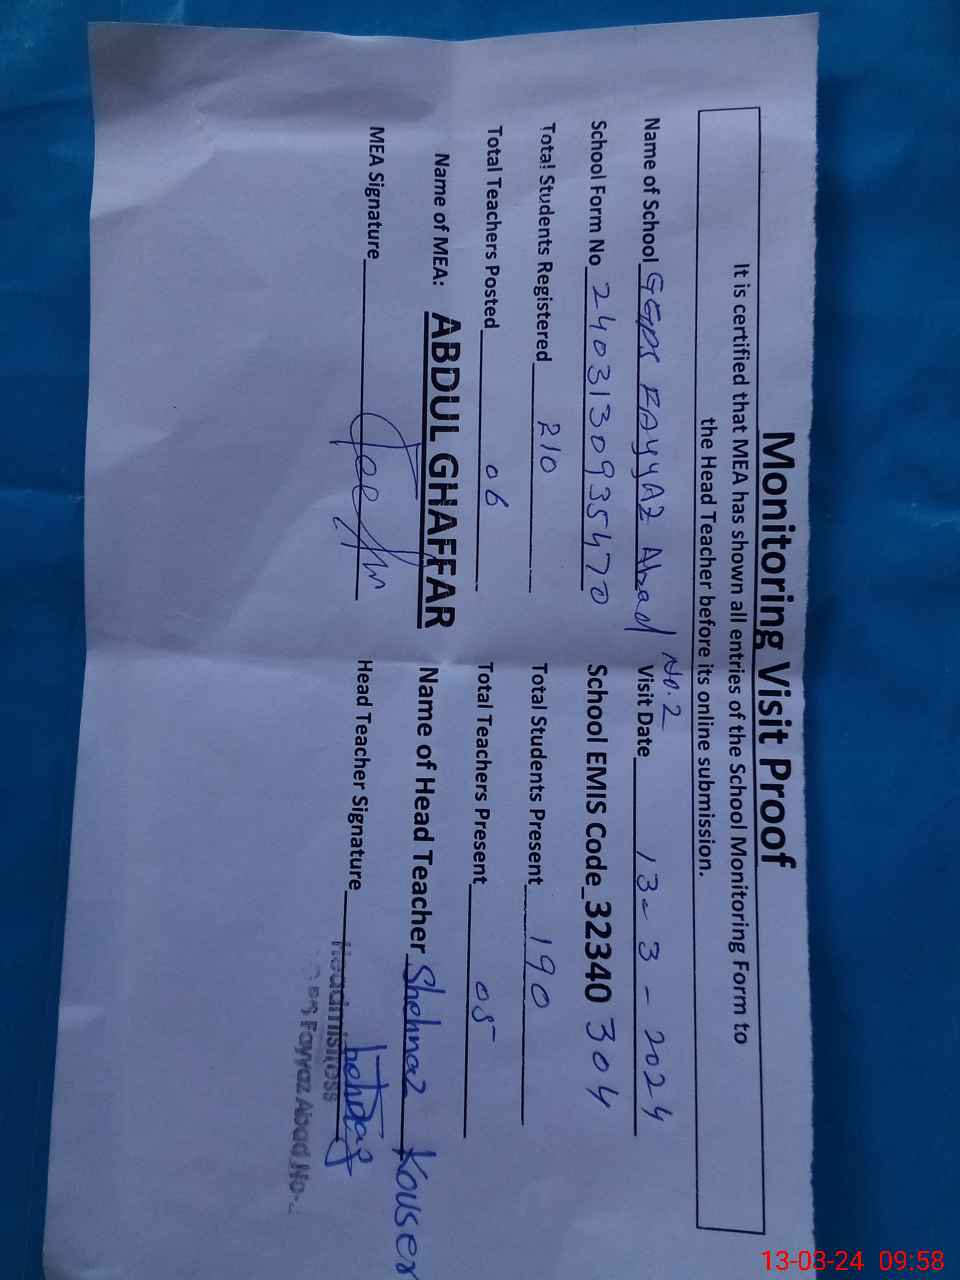 Monitoring Visit Proof
It is certified that MEA has shown all entries of the School Monitoring Form to
the Head Teacher before its online submission.
Name of School GGPS FAyyAZ Abad No.2 Visit Date 13-3-2024
School Form No 2403130935470 School EMIS Code_32340304
Total Students Registered 210 Total Students Present 190
Total Teachers Posted 06 Total Teachers Present 05
Name of MEA: ABDUL GHAFFAR Name of Head Teacher Shehnaz Kouser
MEA Signature Head Teacher Signature
Headmistress
Fayyaz Abad No-
13-03-24 09:58